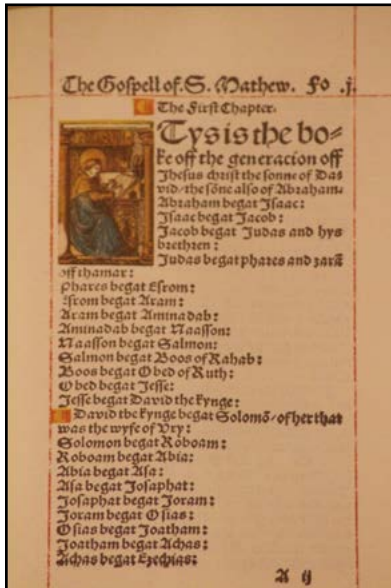 The Gospell of. S. Mathew. Fo .j.
The First Chapter.
Tys is the bo⸗
ke off the generacion off
Jhesus christ the sonne of Da⸗
vid/the sōne also of Abraham.
Abraham begat Jsaac:
Jsaac begat Jacob:
Jacob begat Judas and hys
brethren:
Judas begat phares and zarā
off thamar:
Phares begat Esrom:
Esrom begat Aram:
Aram begat Aminadab:
Aminadab begat Naasson:
Naasson begat Salmon:
Salmon begat Boos of Rahab:
Boos begat Obed of Ruth:
Obed begat Jesse:
Jesse begat David the kynge:
David the kynge begat Solomō/of her that
was the wyfe of Vry:
Solomon begat Roboam:
Roboam begat Abia:
Abia begat Asa:
Asa begat Josaphat:
Josaphat begat Joram:
Joram begat Osias:
Osias begat Joatham:
Joatham begat Achas:
Achas begat Ezechias:
A ij